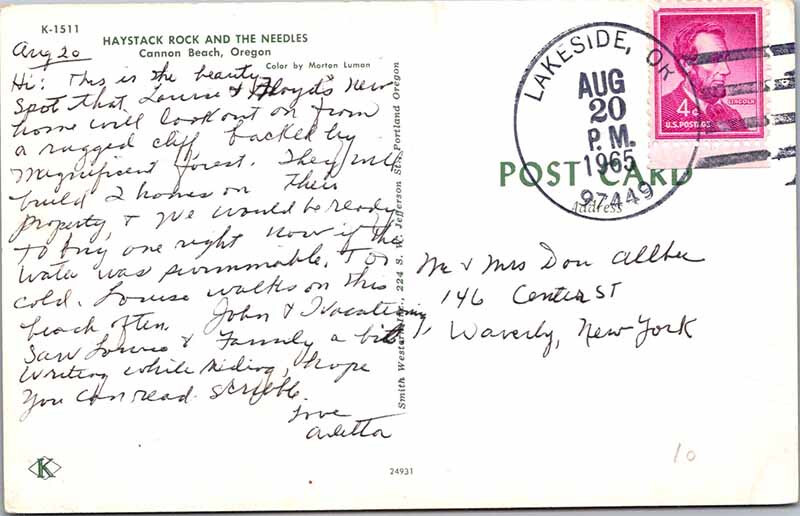 K-1511
HAYSTACK ROCK AND THE NEEDLES
Cannon Beach, Oregon
Color by Morton Luman
Aug 20
Hi: This is the beauty
Spot that Louise & Floyd's new
home will look out on from
a rugged cliff backed by
magnificent forest. They will
build 2 homes on their
property, & we would be ready
to buy one right now if the
water was swimmable. Too
cold. Louise walks on this
beach often. John & I vacationing,
Saw Louise & Family a bit.
Writing while riding, hope
you can read scribble.
Love
Smith Western Inc., 224 S. W. Jefferson St., Portland Oregon
24931
K
LAKESIDE, OR
AUG
20
P.M.
1965
97449
4¢
LINCOLN
U.S. POSTAGE
POST CARD
Address
Mr & Mrs Don Allbee
146 Center St
Waverly, New York
10